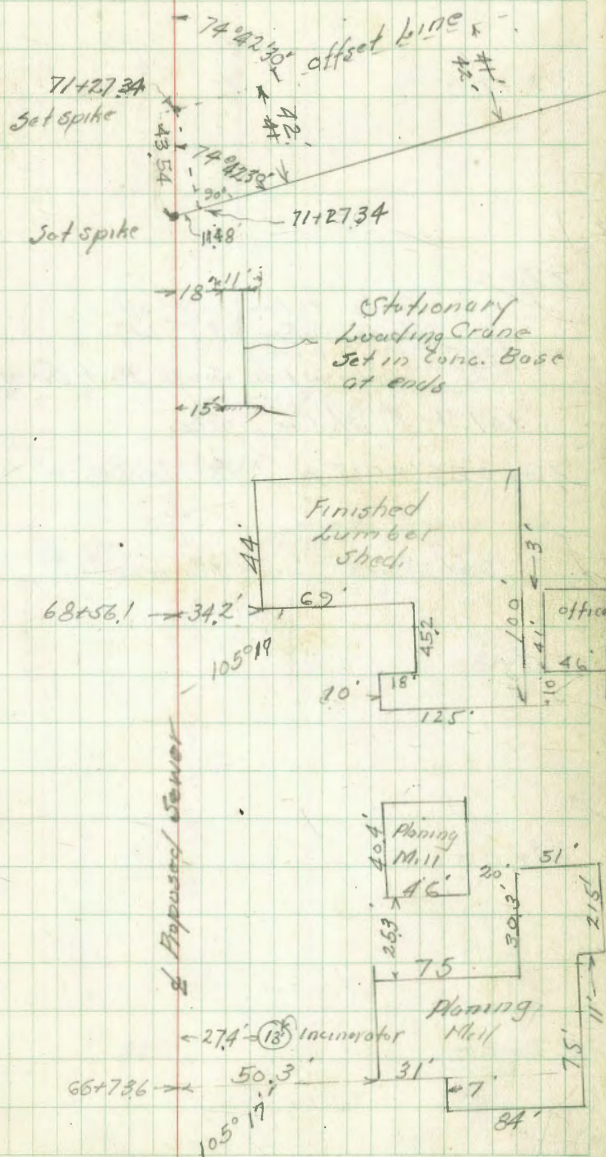 74°42'30"
offset Line
41'
42'
71+27.34
Set spike
42'
41'
43.54
74°42'30"
90°
71+27.34
Set spike
11.48'
18'
11'
Stationary
Loading Crane
Set in Conc. Base
at ends
15'
Finished
Lumber
Shed.
44'
3'
69'
68+56.1
34.2'
100'
41'
office
45.2
46'
105°19'
10'
18'
10'
125'
℄ Proposed Sewer
Planing
Mill
40.4'
46'
20'
51'
25.3'
30.3'
21.5'
75
11'
Planing
Mill
27.4'
13' Incinerator
75'
66+73.6
50.3'
31'
7'
105°17'
84'